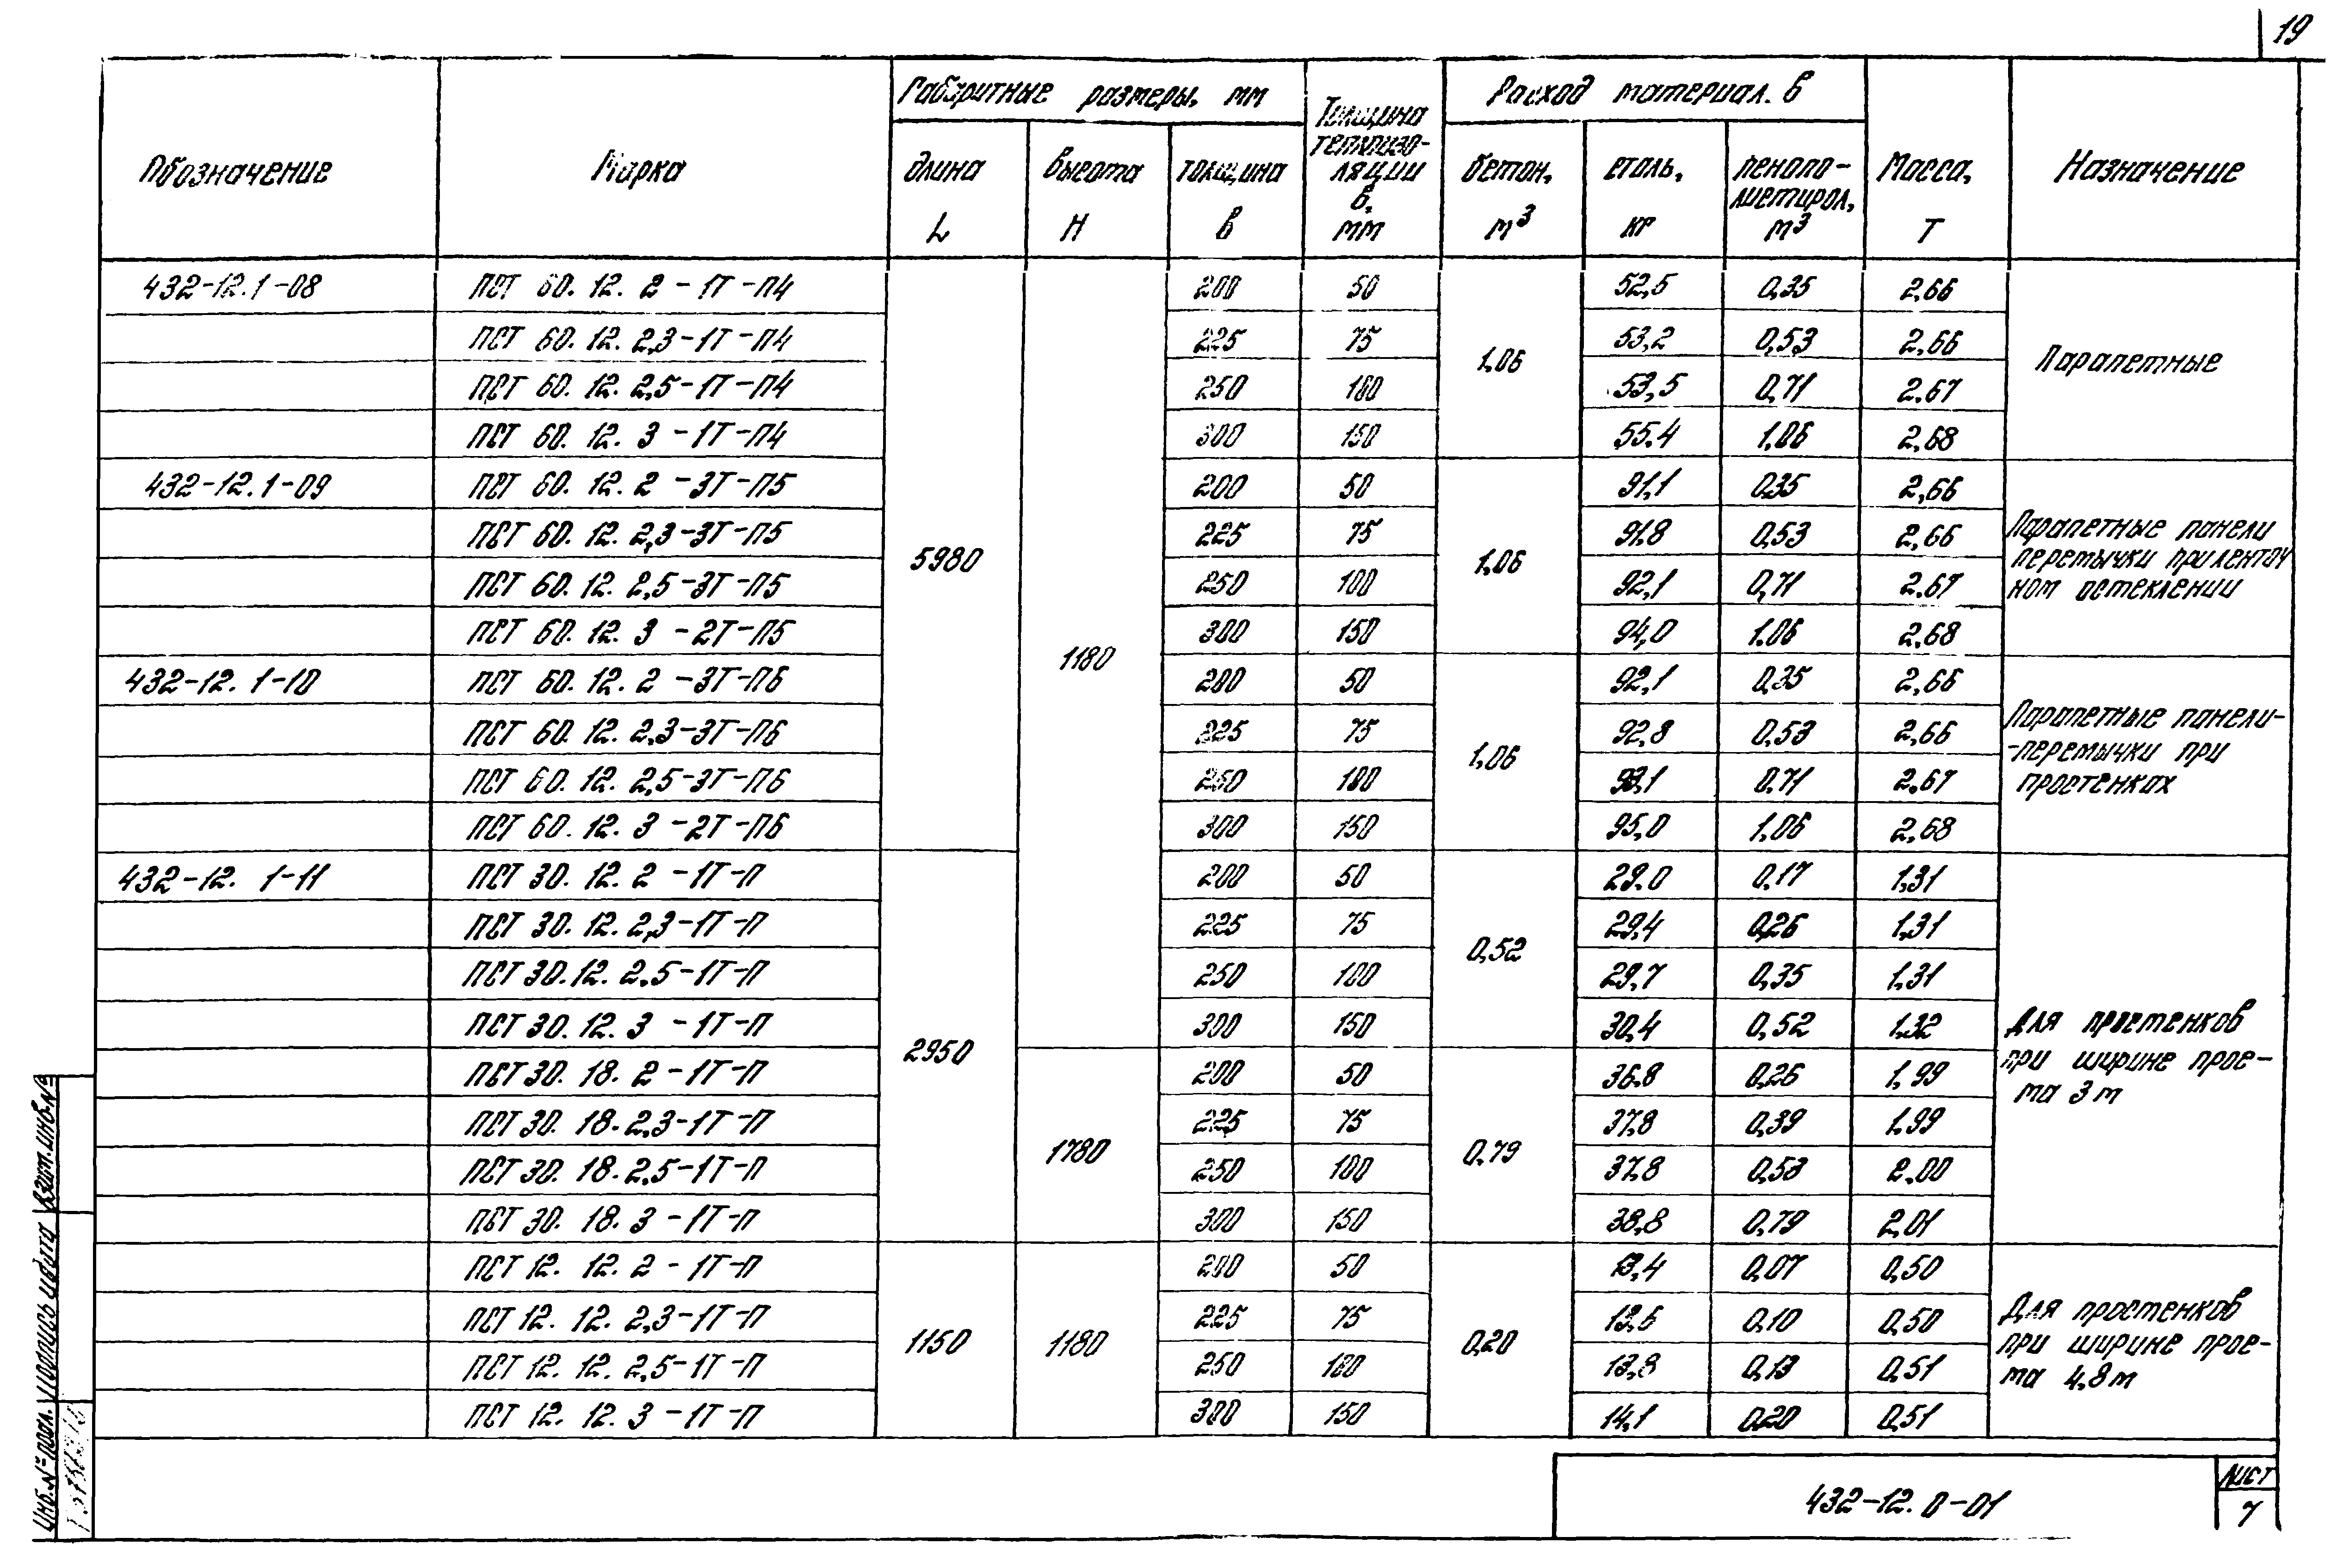 19
Обозначение | Марка | Габаритные размеры, мм | Толщина теплоизо- ляции в, мм | Расход материал. в | Масса, Т | Назначение
длина L | Высота Н | толщина в | бетон, м³ | сталь, кг | пенопо- листирол, м³
432-12.1-08 | ПСТ 60.12.2-1Т-П4 | 5980 | 1180 | 200 | 50 | 1,06 | 52,5 | 0,35 | 2,66 | Парапетные
ПСТ 60.12.2,3-1Т-П4 | 225 | 75 | 53,2 | 0,53 | 2,66
ПСТ 60.12.2,5-1Т-П4 | 250 | 100 | 53,5 | 0,71 | 2,67
ПСТ 60.12.3-1Т-П4 | 300 | 150 | 55,4 | 1,06 | 2,68
432-12.1-09 | ПСТ 60.12.2-3Т-П5 | 200 | 50 | 1,06 | 91,1 | 0,35 | 2,66 | Парапетные панели перемычки при ленточ ном остеклении
ПСТ 60.12.2,3-3Т-П5 | 225 | 75 | 91,8 | 0,53 | 2,66
ПСТ 60.12.2,5-3Т-П5 | 250 | 100 | 92,1 | 0,71 | 2,67
ПСТ 60.12.3-2Т-П5 | 300 | 150 | 94,0 | 1,06 | 2,68
432-12.1-10 | ПСТ 60.12.2-3Т-П6 | 200 | 50 | 1,06 | 92,1 | 0,35 | 2,66 | Парапетные панели- -перемычки при простенках
ПСТ 60.12.2,3-3Т-П6 | 225 | 75 | 92,8 | 0,53 | 2,66
ПСТ 60.12.2,5-3Т-П6 | 250 | 100 | 93,1 | 0,71 | 2,67
ПСТ 60.12.3-2Т-П6 | 300 | 150 | 95,0 | 1,06 | 2,68
432-12.1-11 | ПСТ 30.12.2-1Т-П | 2950 | 200 | 50 | 0,52 | 29,0 | 0,17 | 1,31 | Для простенков при ширине прое- ма 3м
ПСТ 30.12.2,3-1Т-П | 225 | 75 | 29,4 | 0,26 | 1,31
ПСТ 30.12.2,5-1Т-П | 250 | 100 | 29,7 | 0,35 | 1,31
ПСТ 30.12.3-1Т-П | 300 | 150 | 30,4 | 0,52 | 1,32
ПСТ 30.18.2-1Т-П | 1780 | 200 | 50 | 0,79 | 36,8 | 0,26 | 1,99
ПСТ 30.18.2,3-1Т-П | 225 | 75 | 37,8 | 0,39 | 1,99
ПСТ 30.18.2,5-1Т-П | 250 | 100 | 37,8 | 0,53 | 2,00
ПСТ 30.18.3-1Т-П | 300 | 150 | 38,8 | 0,79 | 2,01
ПСТ 12.12.2-1Т-П | 1150 | 1180 | 200 | 50 | 0,20 | 13,4 | 0,07 | 0,50 | Для простенков при ширине прое- ма 4,8м
ПСТ 12.12.2,3-1Т-П | 225 | 75 | 13,6 | 0,10 | 0,50
ПСТ 12.12.2,5-1Т-П | 250 | 100 | 13,8 | 0,13 | 0,51
ПСТ 12.12.3-1Т-П | 300 | 150 | 14,1 | 0,20 | 0,51
432-12.0-01
Лист
7
Инв.№ подл. Подпись и дата Взам.инв.№